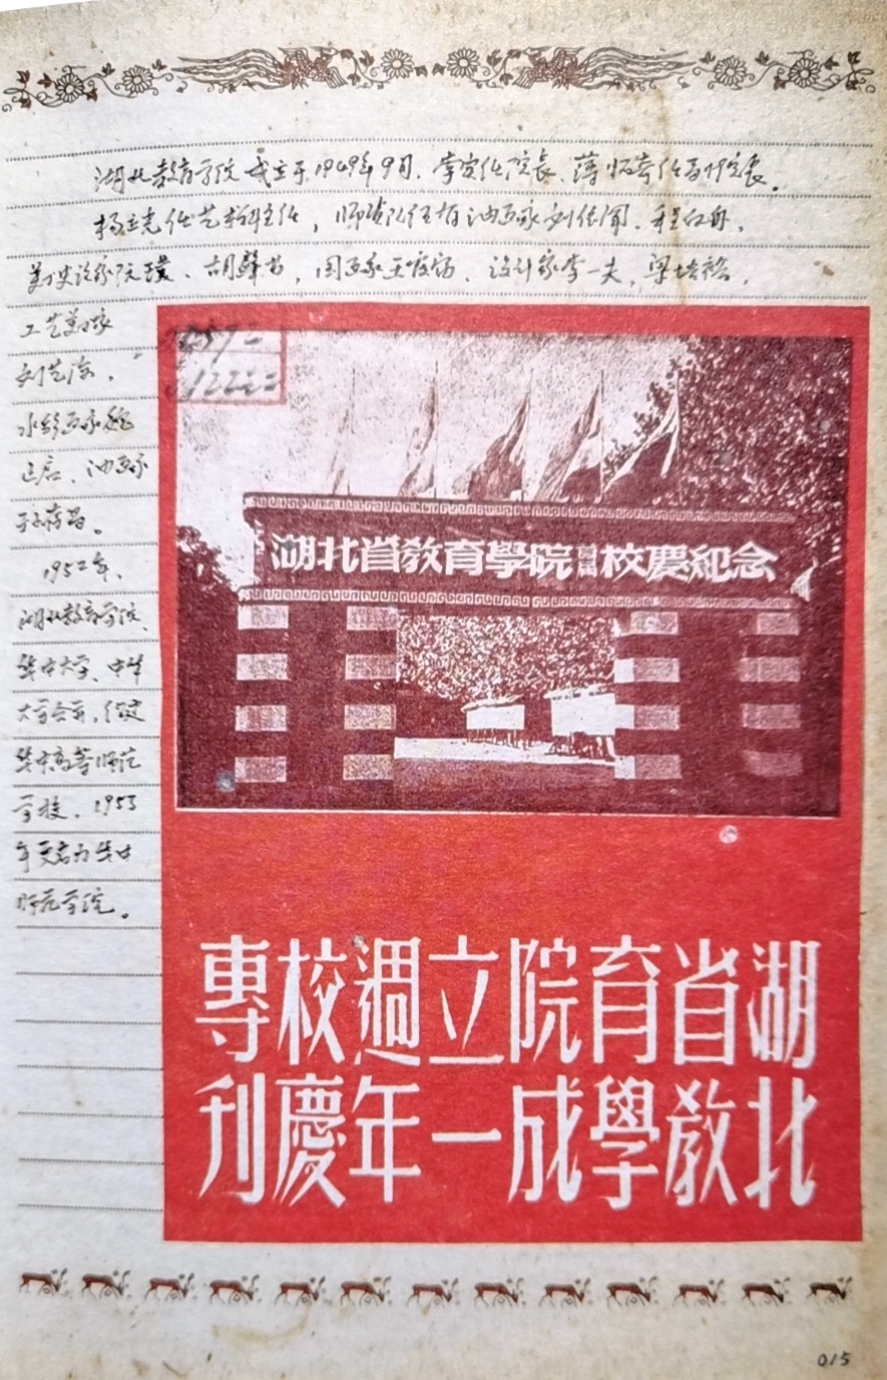 湖北教育学院成立于1949年9月.李实任院长、薄怀奇任副院长。
杨立光任艺术科主任，师资队伍有油画家刘依闻、程白舟、
美术史论家阮璞、胡，国画家王霞宙、设计家李一夫，梁培
工艺美术家
刘
水彩画家
、油画家
。
1952年、
湖北教育学院、
华中大学、中华
大学合并，
华中高等师范
学校、1953
年更名为华中
师范学院。
湖北省教育學院校慶紀念
湖北省教育學院成立一週年校慶專刊
015